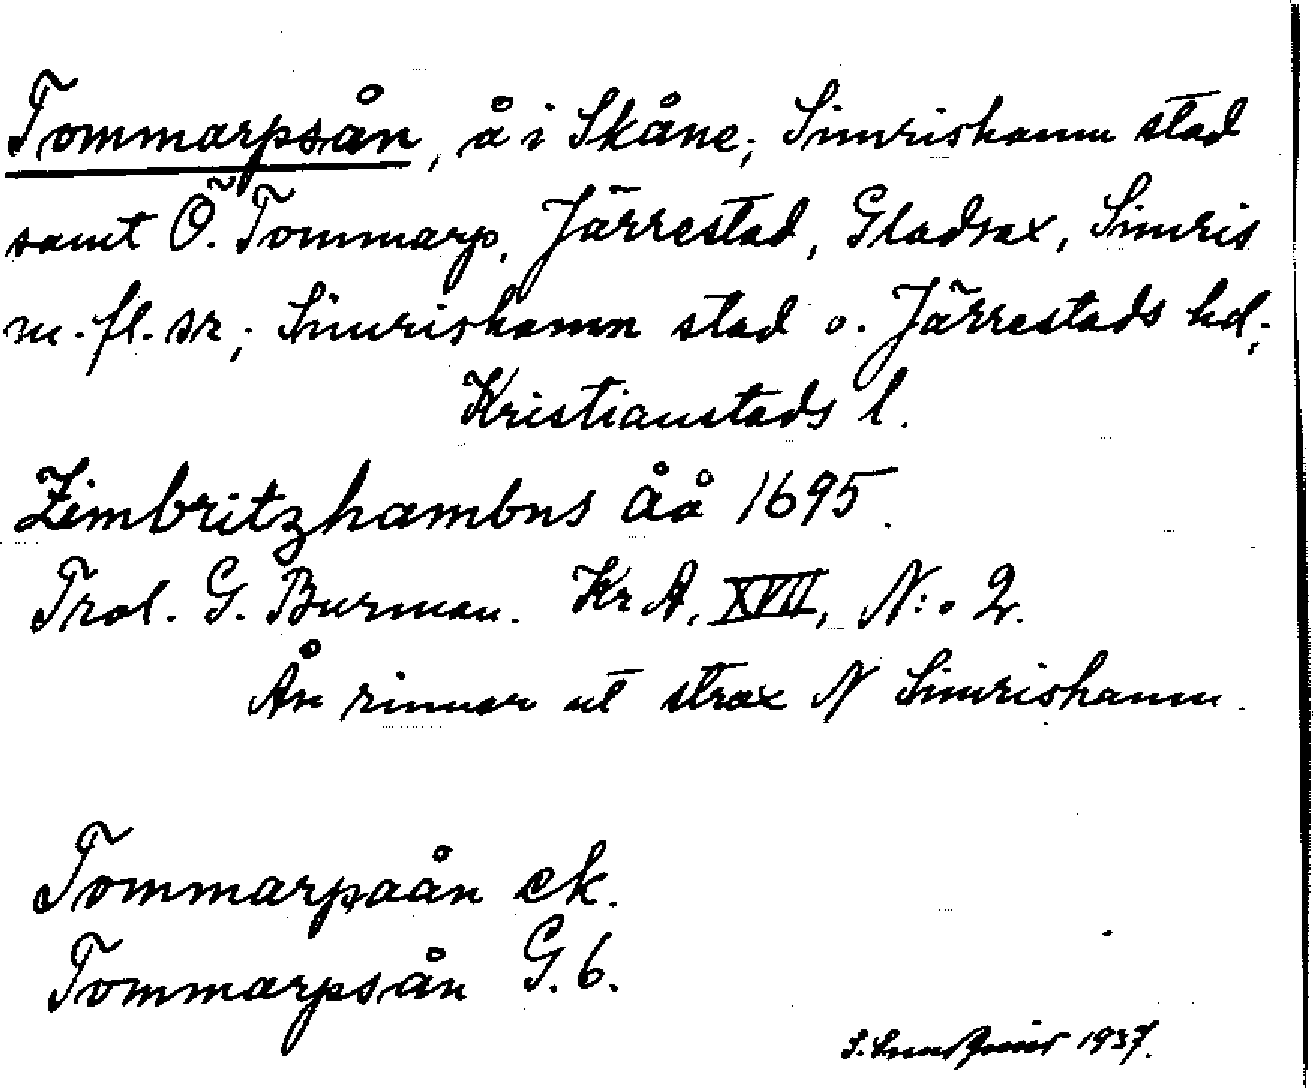 Tommarpsån, å i Skåne; Simrishamn stad
samt Ö. Tommarp, Järrestad, Gladsax, Simris
m. fl. sr; Simrishamn stad o. Järrestads hd;
Kristianstads l.
Zimbritzhambns åå 1695.
Trol. G. Burman. KrA, XVII, N:o 2.
Ån rinner ut strax N Simrishamn.
Tommarpaån ek.
Tommarpsån G. b.
1937.